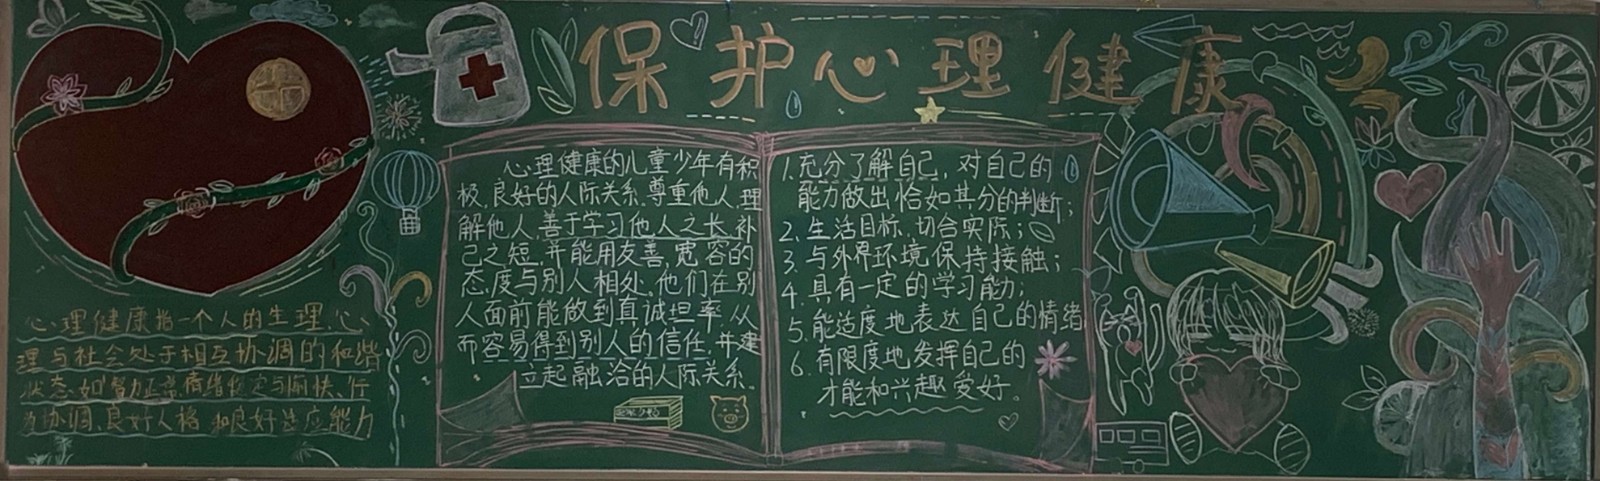 保护心理健康
心理健康的儿童少年有积
极、良好的人际关系、尊重他人、理
解他人、善于学习他人之长补
己之短、并能用友善、宽容的
态度与别人相处、他们在别
人面前能做到真诚坦率、从
而容易得到别人的信任、并建
立起融洽的人际关系。
1.充分了解自己，对自己的
能力做出恰如其分的判断；
2.生活目标、切合实际；
3.与外界环境保持接触；
4.具有一定的学习能力；
5.能适度地表达自己的情绪
6.有限度地发挥自己的
才能和兴趣爱好。
心理健康指一个人的生理、心
理与社会处于相互协调的和谐
状态、如智力正常、情绪稳定与愉快、行
为协调、良好人格和良好适应能力